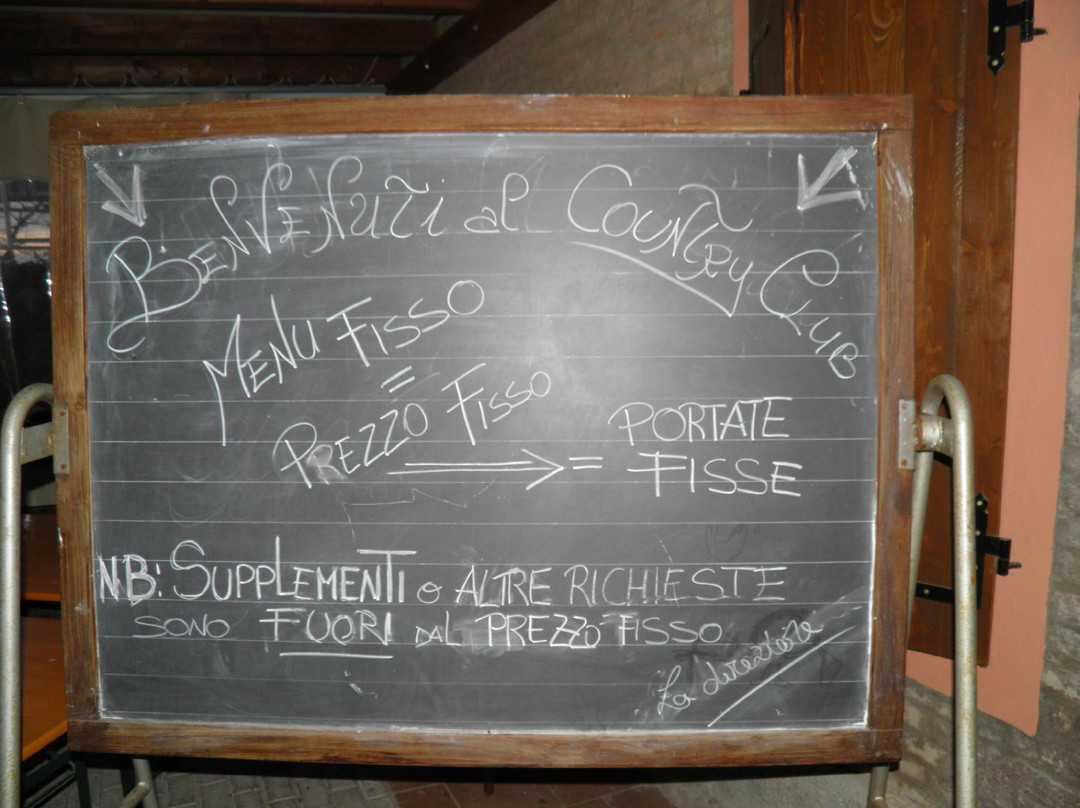 Benvenuti al Country Club
MENU FISSO
=
PREZZO FISSO
= PORTATE
FISSE
NB: SUPPLEMENTI o ALTRE RICHIESTE
SONO FUORI DAL PREZZO FISSO
La direzione